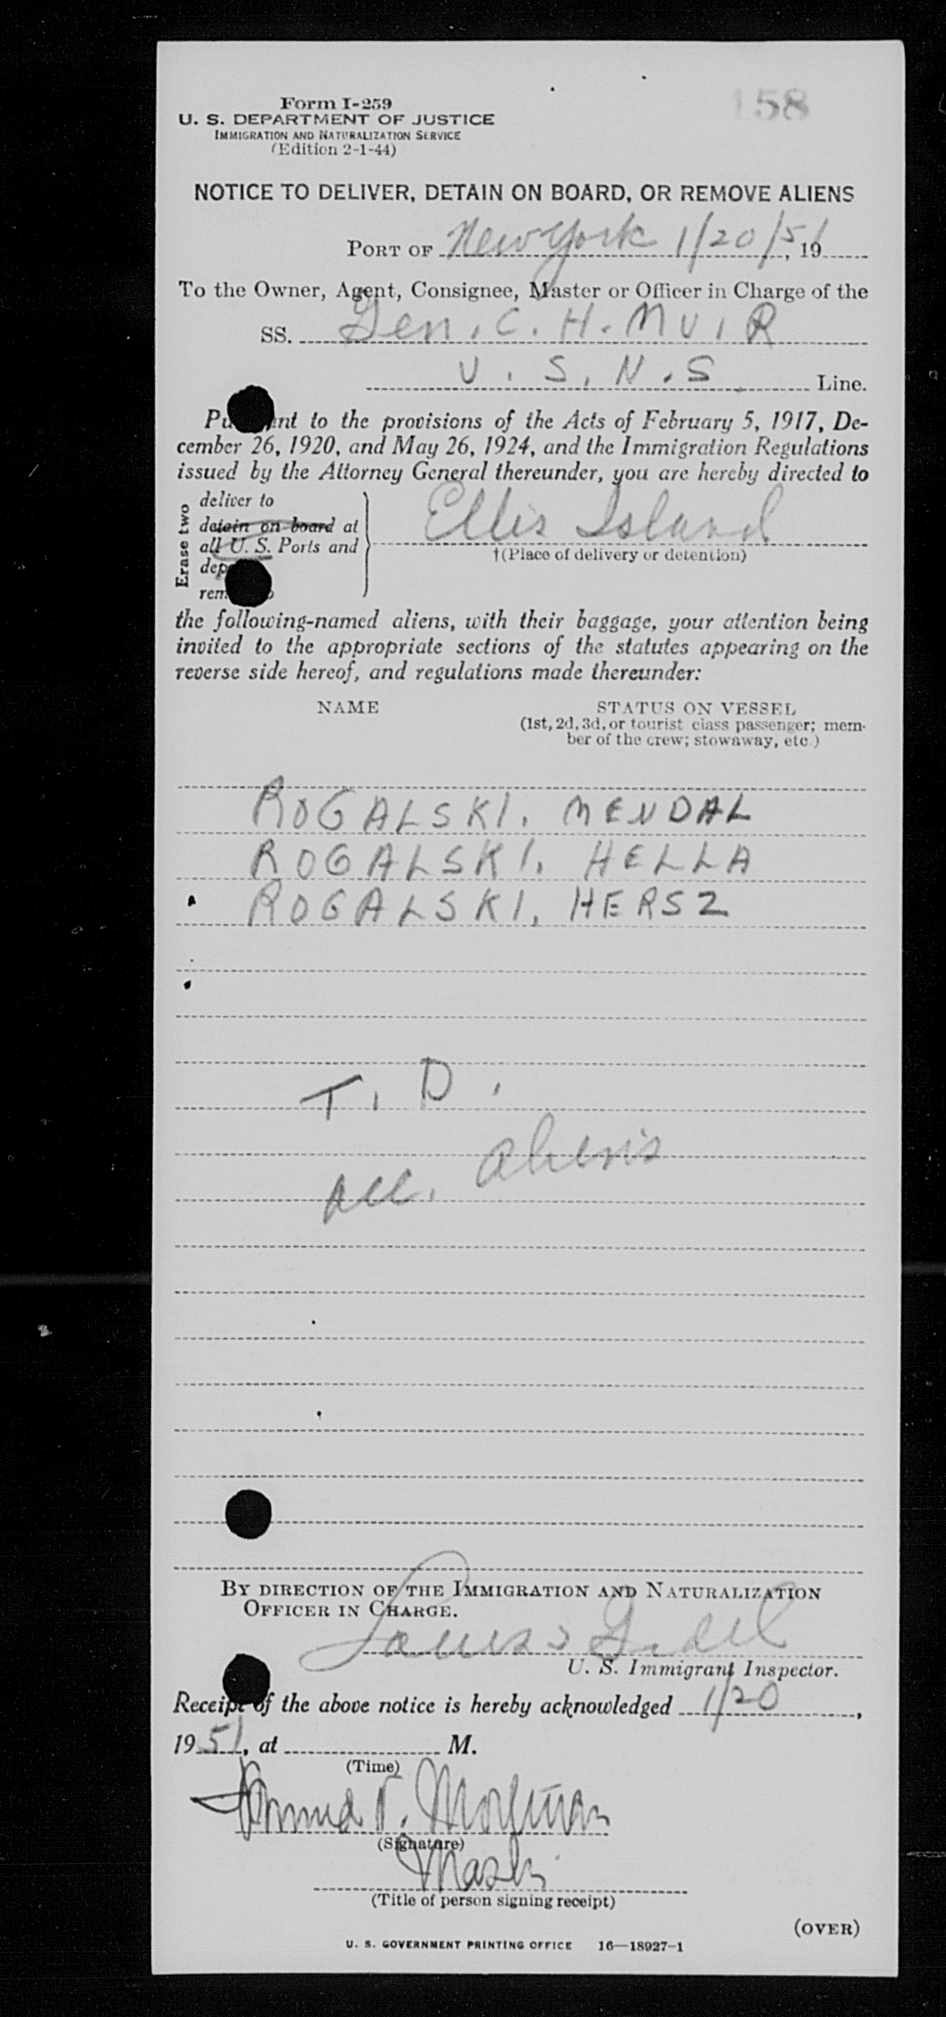 158
Form I-259
U. S. DEPARTMENT OF JUSTICE
IMMIGRATION AND NATURALIZATION SERVICE
(Edition 2-1-44)
NOTICE TO DELIVER, DETAIN ON BOARD, OR REMOVE ALIENS
PORT OF New York 1/20/51, 19
To the Owner, Agent, Consignee, Master or Officer in Charge of the
SS. Gen. C. H. MUIR
U. S. N. S. Line.
to the provisions of the Acts of February 5, 1917, De-
cember 26, 1920, and May 26, 1924, and the Immigration Regulations
issued by the Attorney General thereunder, you are hereby directed to
Erase two
deliver to
detain on board at
all U. S. Ports and
Ellis Island
†(Place of delivery or detention)
the following-named aliens, with their baggage, your attention being
invited to the appropriate sections of the statutes appearing on the
reverse side hereof, and regulations made thereunder:
NAME STATUS ON VESSEL
(1st, 2d, 3d, or tourist class passenger; mem-
ber of the crew; stowaway, etc.)
ROGALSKI, MENDAL
ROGALSKI, HELLA
ROGALSKI, HERSZ
T. D.
aliens
BY DIRECTION OF THE IMMIGRATION AND NATURALIZATION
OFFICER IN CHARGE.
U. S. Immigrant Inspector.
Receipt of the above notice is hereby acknowledged 1/20,
1951, at M.
(Time)
(Signature)
(Title of person signing receipt)
(OVER)
U. S. GOVERNMENT PRINTING OFFICE 16—18927-1